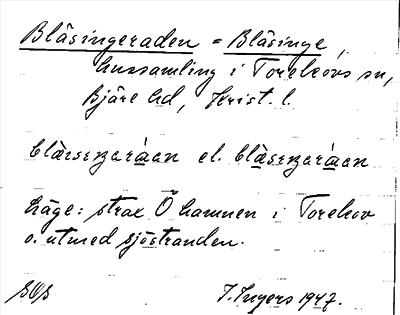 Bläsingeraden = Bläsinge,
hussamling i Torekovs sn,
Bjäre hd, Krist. l.
blæseŋeráaen el. blàseŋeráaen
Läge: strax Ö hamnen i Torekov
o. utmed sjöstranden.
I. Ingers 1947.